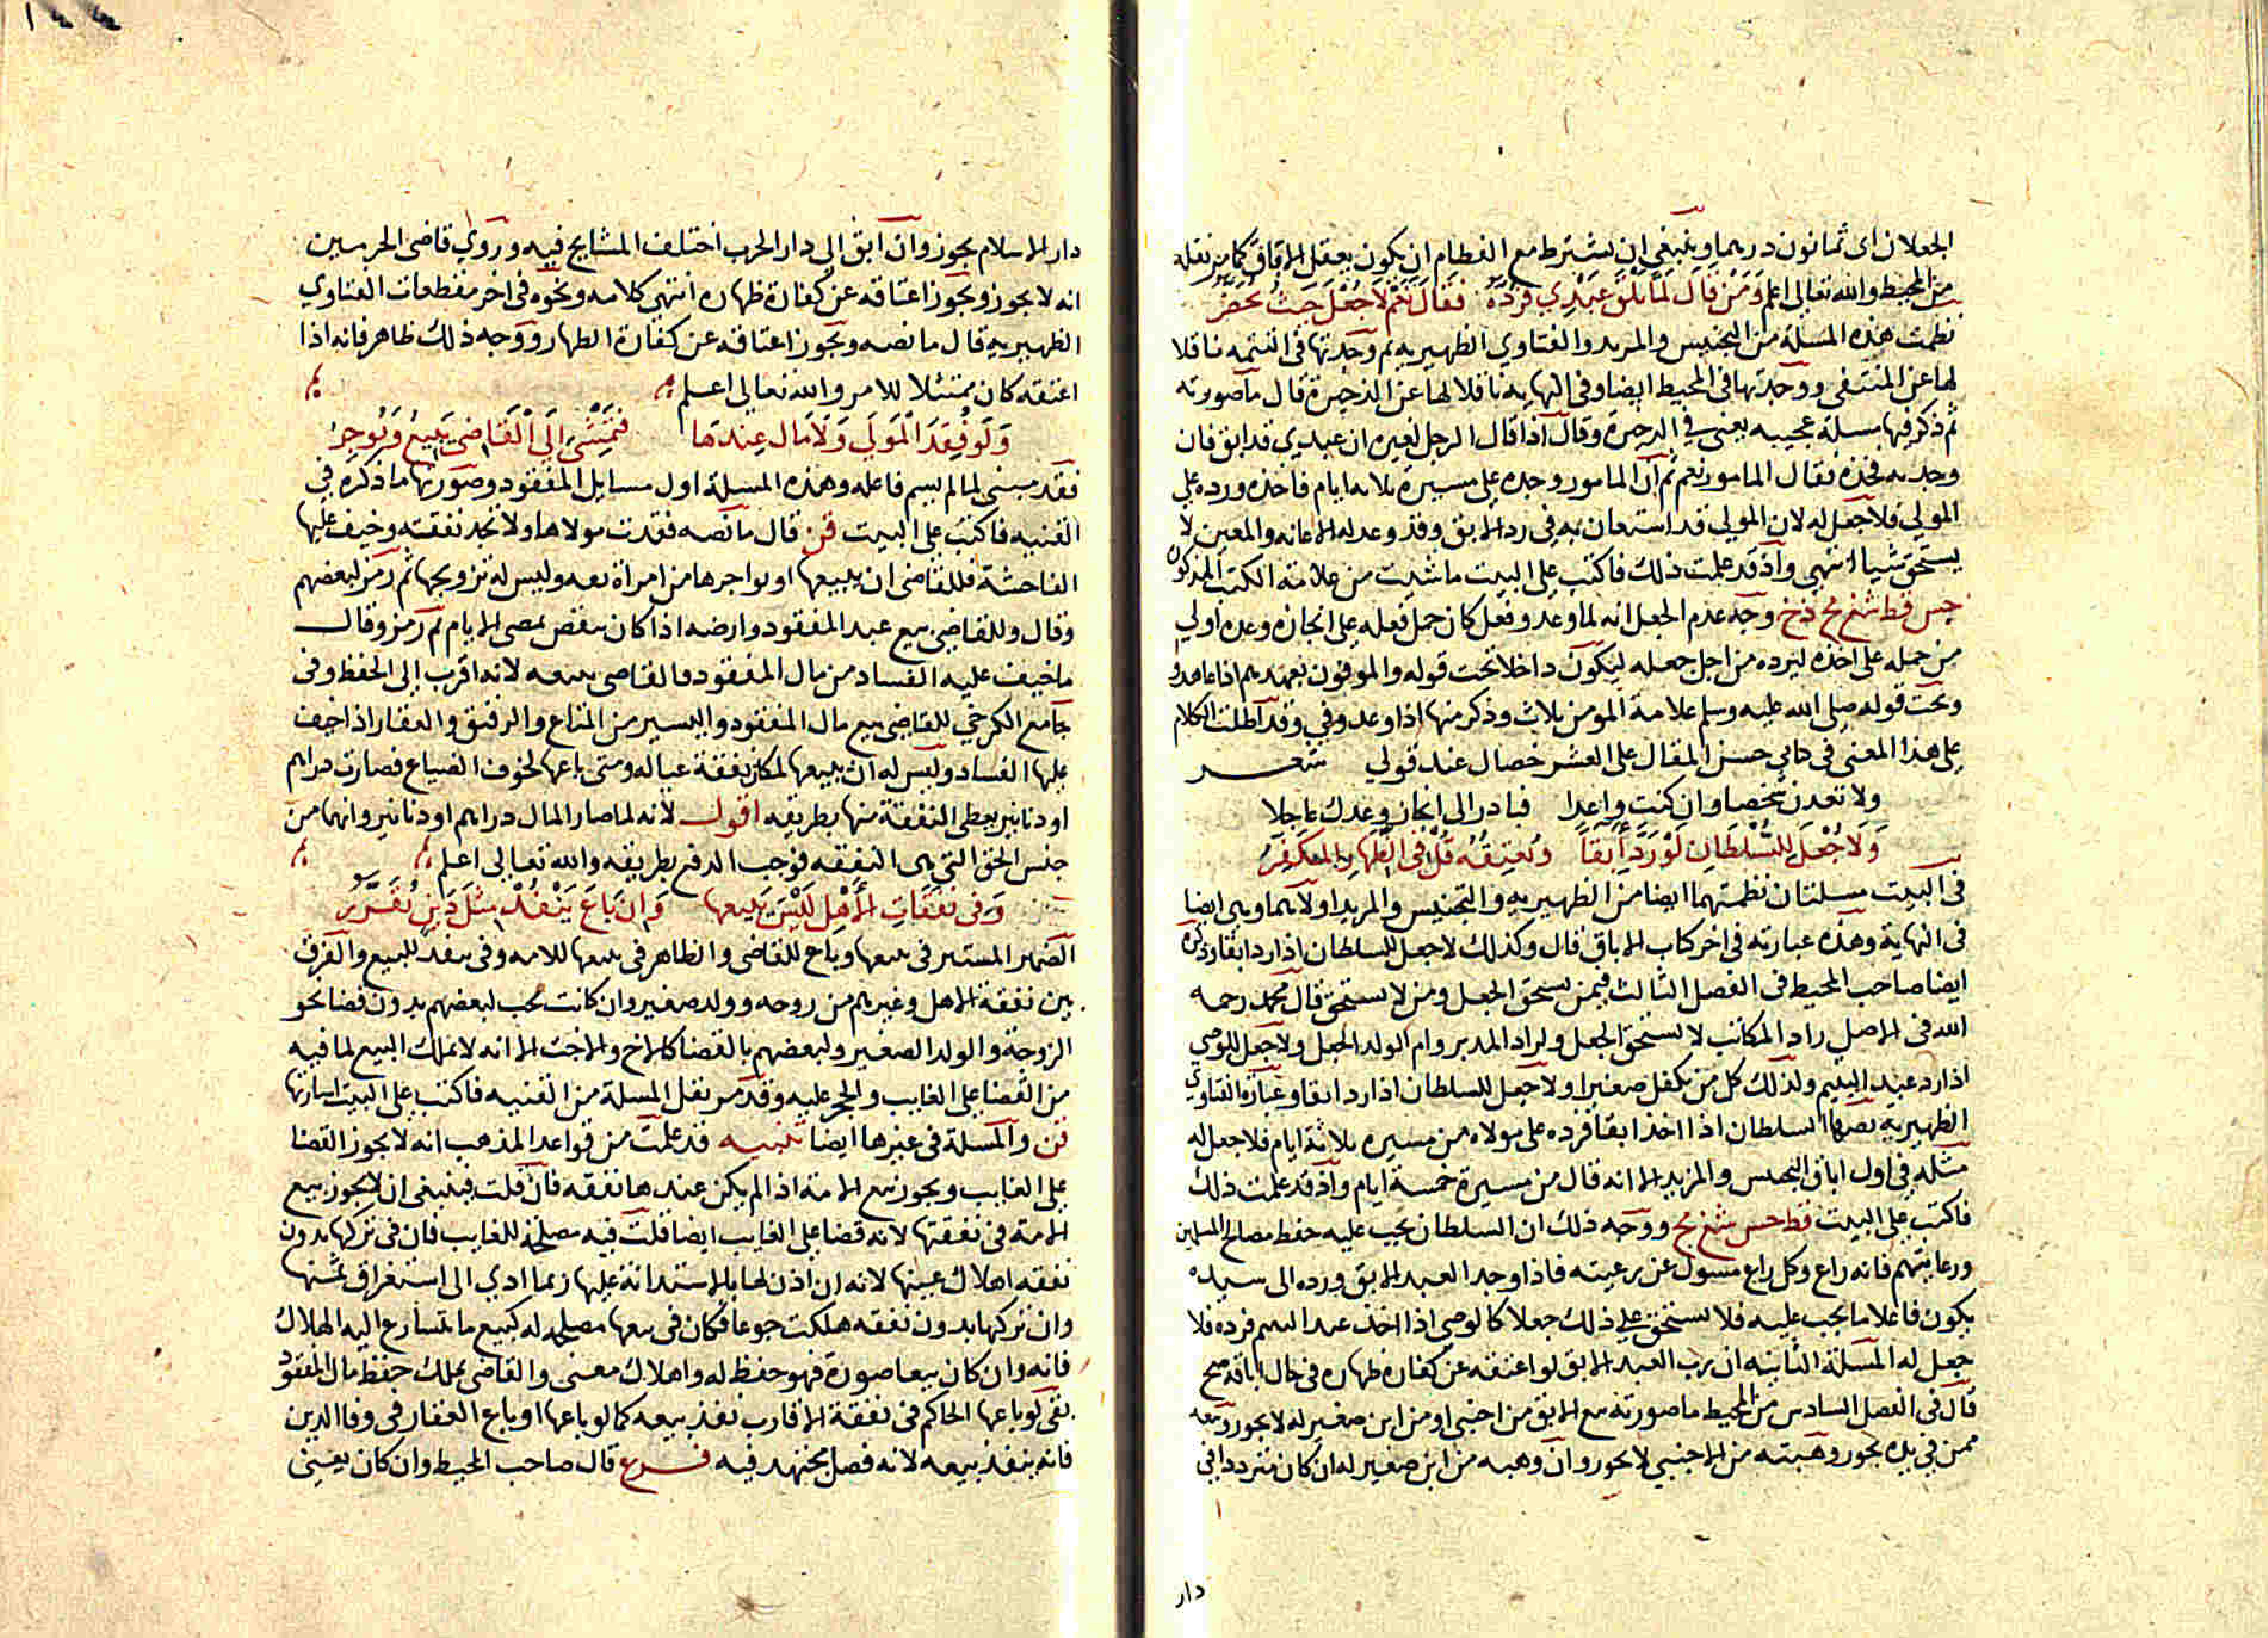 الجعلان اى ثمانون درهما وينبغى ان يشترط مع الفطام ان يكون يعقل الاباق كما مر نقله
من المحيط والله تعالى اعلم ومن قال لما يلق عبدي فرده فقال نعم لا جعل حيث يحقر
نظمت هذه المسلة من التجنيس والمزيد والفتاوي الظهيريه ثم وجدتها فى التتمه ناقلا
لها عن المنتقى ووجدتها فى المحيط ايضا وفى النهايه ناقلا لها عن الذخيرة قال ما صورته
ثم ذكر فيها مسلة عجيبه يعنى في الذخيرة وقال اذا قال الرجل لغيره ان عبدي قد ابق فان
وجدته فخذه فقال المامور نعم ثم ان المامور وجده على مسيرة ثلاثه ايام فاخذه ورده على
المولي فلا جعل له لان المولي قد استعان به في رد الابق وقد وعد له الاعانه والمعين لا
يستحق شيا انتهى واذ قد علمت ذلك فاكتب على البيت ما شيت من علامة الكتب المذكورة
جس قط شغ مح ذخ وجه عدم الجعل انه لما وعد وفعل كان حمل فعله على انجازه وعده اولي
من حمله على اخذه ليرده من اجل جعله ليكون داخلا تحت قوله والموفون بعهدهم اذا عاهدوا
وتحت قوله صلى الله عليه وسلم علامة المومن ثلاث وذكر منها اذا وعد وفي وقد اطلت الكلام
على هذا المعنى فى حسن المقال على العشر خصال عند قولي شعر
ولا تعدن شخصا وان كنت واعدا فبادر الى انجاز وعدك عاجلا
ولا جعل للسلطان لو رد آبقا وتعتيقه قل فى الظهار المكفر
فى البيت مسلتان نظمتهما ايضا من الظهيريه والتجنيس والمزيد اولاهما وهى ايضا
فى النهاية وهذه عبارته فى اخر كتاب الاباق قال وكذلك لا جعل للسلطان اذا رد ابقا وذكره
ايضا صاحب المحيط فى الفصل الثالث فيمن يستحق الجعل ومن لا يستحق قال محمد رحمه
الله فى الاصل راد المكاتب لا يستحق الجعل ولراد المدبر وام الولد الجعل ولا جعل للوصي
اذا رد عبد اليتيم ولذلك كل من يكفل صغيرا ولا جعل للسلطان اذا رد ابقا وعبارة الفتاوي
الظهيريه نصها السلطان اذا اخذ ابقا فرده على مولاه من مسيره ثلاثة ايام فلا جعل له
مثله فى اول اباق التجنيس والمزيد الا انه قال من مسيرة خمسة ايام واذ قد علمت ذلك
فاكتب على البيت قط جس شغ مح ووجه ذلك ان السلطان يجب عليه حفظ مصالح المسلمين
ورعايتهم فانه راع وكل راع مسول عن رعيته فاذا وجد العبد الابق ورده الى سيده
يكون فاعلا ما يجب عليه فلا يستحق على ذلك جعلا كالوصي اذا اخذ عبد اليتيم فرده فلا
جعل له المسلة الثانيه ان رب العبد الابق لو اعتقه عن كفارة ظهاره فى حال اباقه صح
قال فى الفصل السادس من المحيط ما صورته بيع الابق من اجنبي او من ابن صغير له لا يجوز وبيعه
ممن في يده يجوز وهبته من الاجنبي لا يجوز وان وهبه من ابن صغير له ان كان مترددا في
دار
دار الاسلام يجوز وان ابق الى دار الحرب اختلف المشايح فيه وروي قاضى الحرمين
انه لا يجوز ويجوز اعتاقه عن كفارة ظهاره انتهى كلامه ونحوه فى اخر مقطعات الفتاوي
الظهيريه قال ما نصه ويجوز اعتاقه عن كفارة الظهار ووجه ذلك ظاهر فانه اذا
اعتقه كان ممتثلا للامر والله تعالى اعلم
ولو فقد المولي ولا مال عندها فتمشى الى القاضى يبيع ويوجر
فقد مبنى لما لم يسم فاعله وهذه المسلة اول مسايل المفقود وصورتها ما ذكره في
القنيه فاكتب على البيت قن قال ما نصه فقدت مولاها ولا تجد نفقته وخيف عليها
الفاحشة فللقاضى ان يبيعها او يواجرها من امراة ثقه وليس له تزويجها ثم رمز لبعضهم
وقال وللقاضى بيع عبد المفقود وارضه اذا كان ينقص بمضى الايام ثم رمز وقال
ما خيف عليه الفساد من مال المفقود فالقاضى يبيعه لانه اقرب إلى الحفظ وفى
جامع الكرخي للقاضى بيع مال المفقود واليسير من المتاع والرقيق والعقار اذا خيف
عليها الفساد وليس له ان يبيعها لمكان نفقة عياله ومتى باعها لخوف الضياع فصارت دراهم
او دنانير يعطى النفقة منها بطريقه اقول لانه لما صار المال دراهم او دنانير وانهما من
جنس الحق التي هى النفقه فوجب الدفع بطريقه والله تعالى اعلم
وفى نفقات الاهل ليس يبيعها وان باع ينفذ مثل دين تقرر
الضمير المستتر فى يبيعها وباع للقاضى والظاهر فى يبيعها للامه وفى ينفذ للبيع والفرق
بين نفقة الاهل وغيرهم من زوجه وولد صغير وان كانت تجب لبعضهم بدون قضا نحو
الزوجة والولد الصغير ولبعضهم بالقضا كالاخ والاخت الا انه لا يملك البيع لما فيه
من القضا على الغايب والحجر عليه وقد مر نقل المسلة من القنيه فاكتب على البيت اشارتها
قن والمسلة فى غيرها ايضا تنبيه قد علمت من قواعد المذهب انه لا يجوز القضا
على الغايب ويجوز بيع الامة اذا لم يكن عندها نفقه فان قلت فينبغى ان لا يجوز بيع
الامة فى نفقتها لانه قضا على الغايب ايضا قلت فيه مصلحة للغايب فان فى تركها بدون
نفقه اهلاك عينها لانه ان اذن لها بالاستدانة عليها ربما ادي الى استغراق ثمنها
وان تركها بدون نفقه هلكت جوعا فكان فى بيعها مصلحه له كبيع ما يتسارع اليه الهلاك
فانه وان كان بيعا صورة فهو حفظ له واهلاك معنى والقاضى يملك حفظ مال المفقود
بقى لو باعها الحاكم فى نفقة الاقارب نفذ بيعه كما لو باعها او باع العقار فى وفا الدين
فانه ينفذ بيعه لانه فصل مجتهد فيه فرع قال صاحب المحيط وان كان يعنى